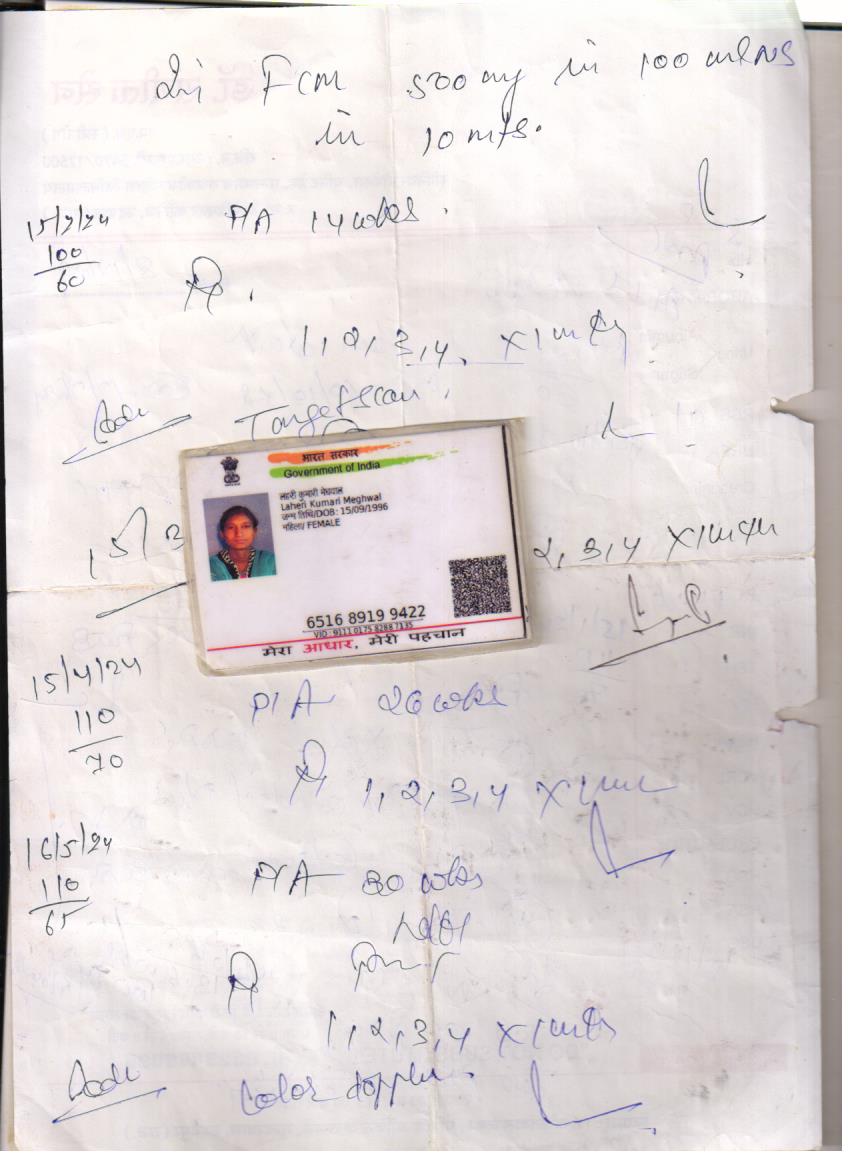 Inj FCM 500 mg in 100 ml NS
in 10 mts.
15/2/24 P/A 14 wks.
100
60
1, 2, 3, 4, x 1 mth
Adv Target scan.
भारत सरकार
Government of India
लहरी कुमारी मेघवाल
Laheri Kumari Meghwal
जन्म तिथि/DOB: 15/09/1996
महिला/ FEMALE
6516 8919 9422
VID: 9111 0175 8288 7135
मेरा आधार, मेरी पहचान
15/3 2, 3, 4 x 1 mth
15/4/24 P/A 26 wks
110
70
1, 2, 3, 4 x 1 mth
16/5/24 P/A 30 wks
110
65
1, 2, 3, 4 x 1 mth
Adv color doppler.